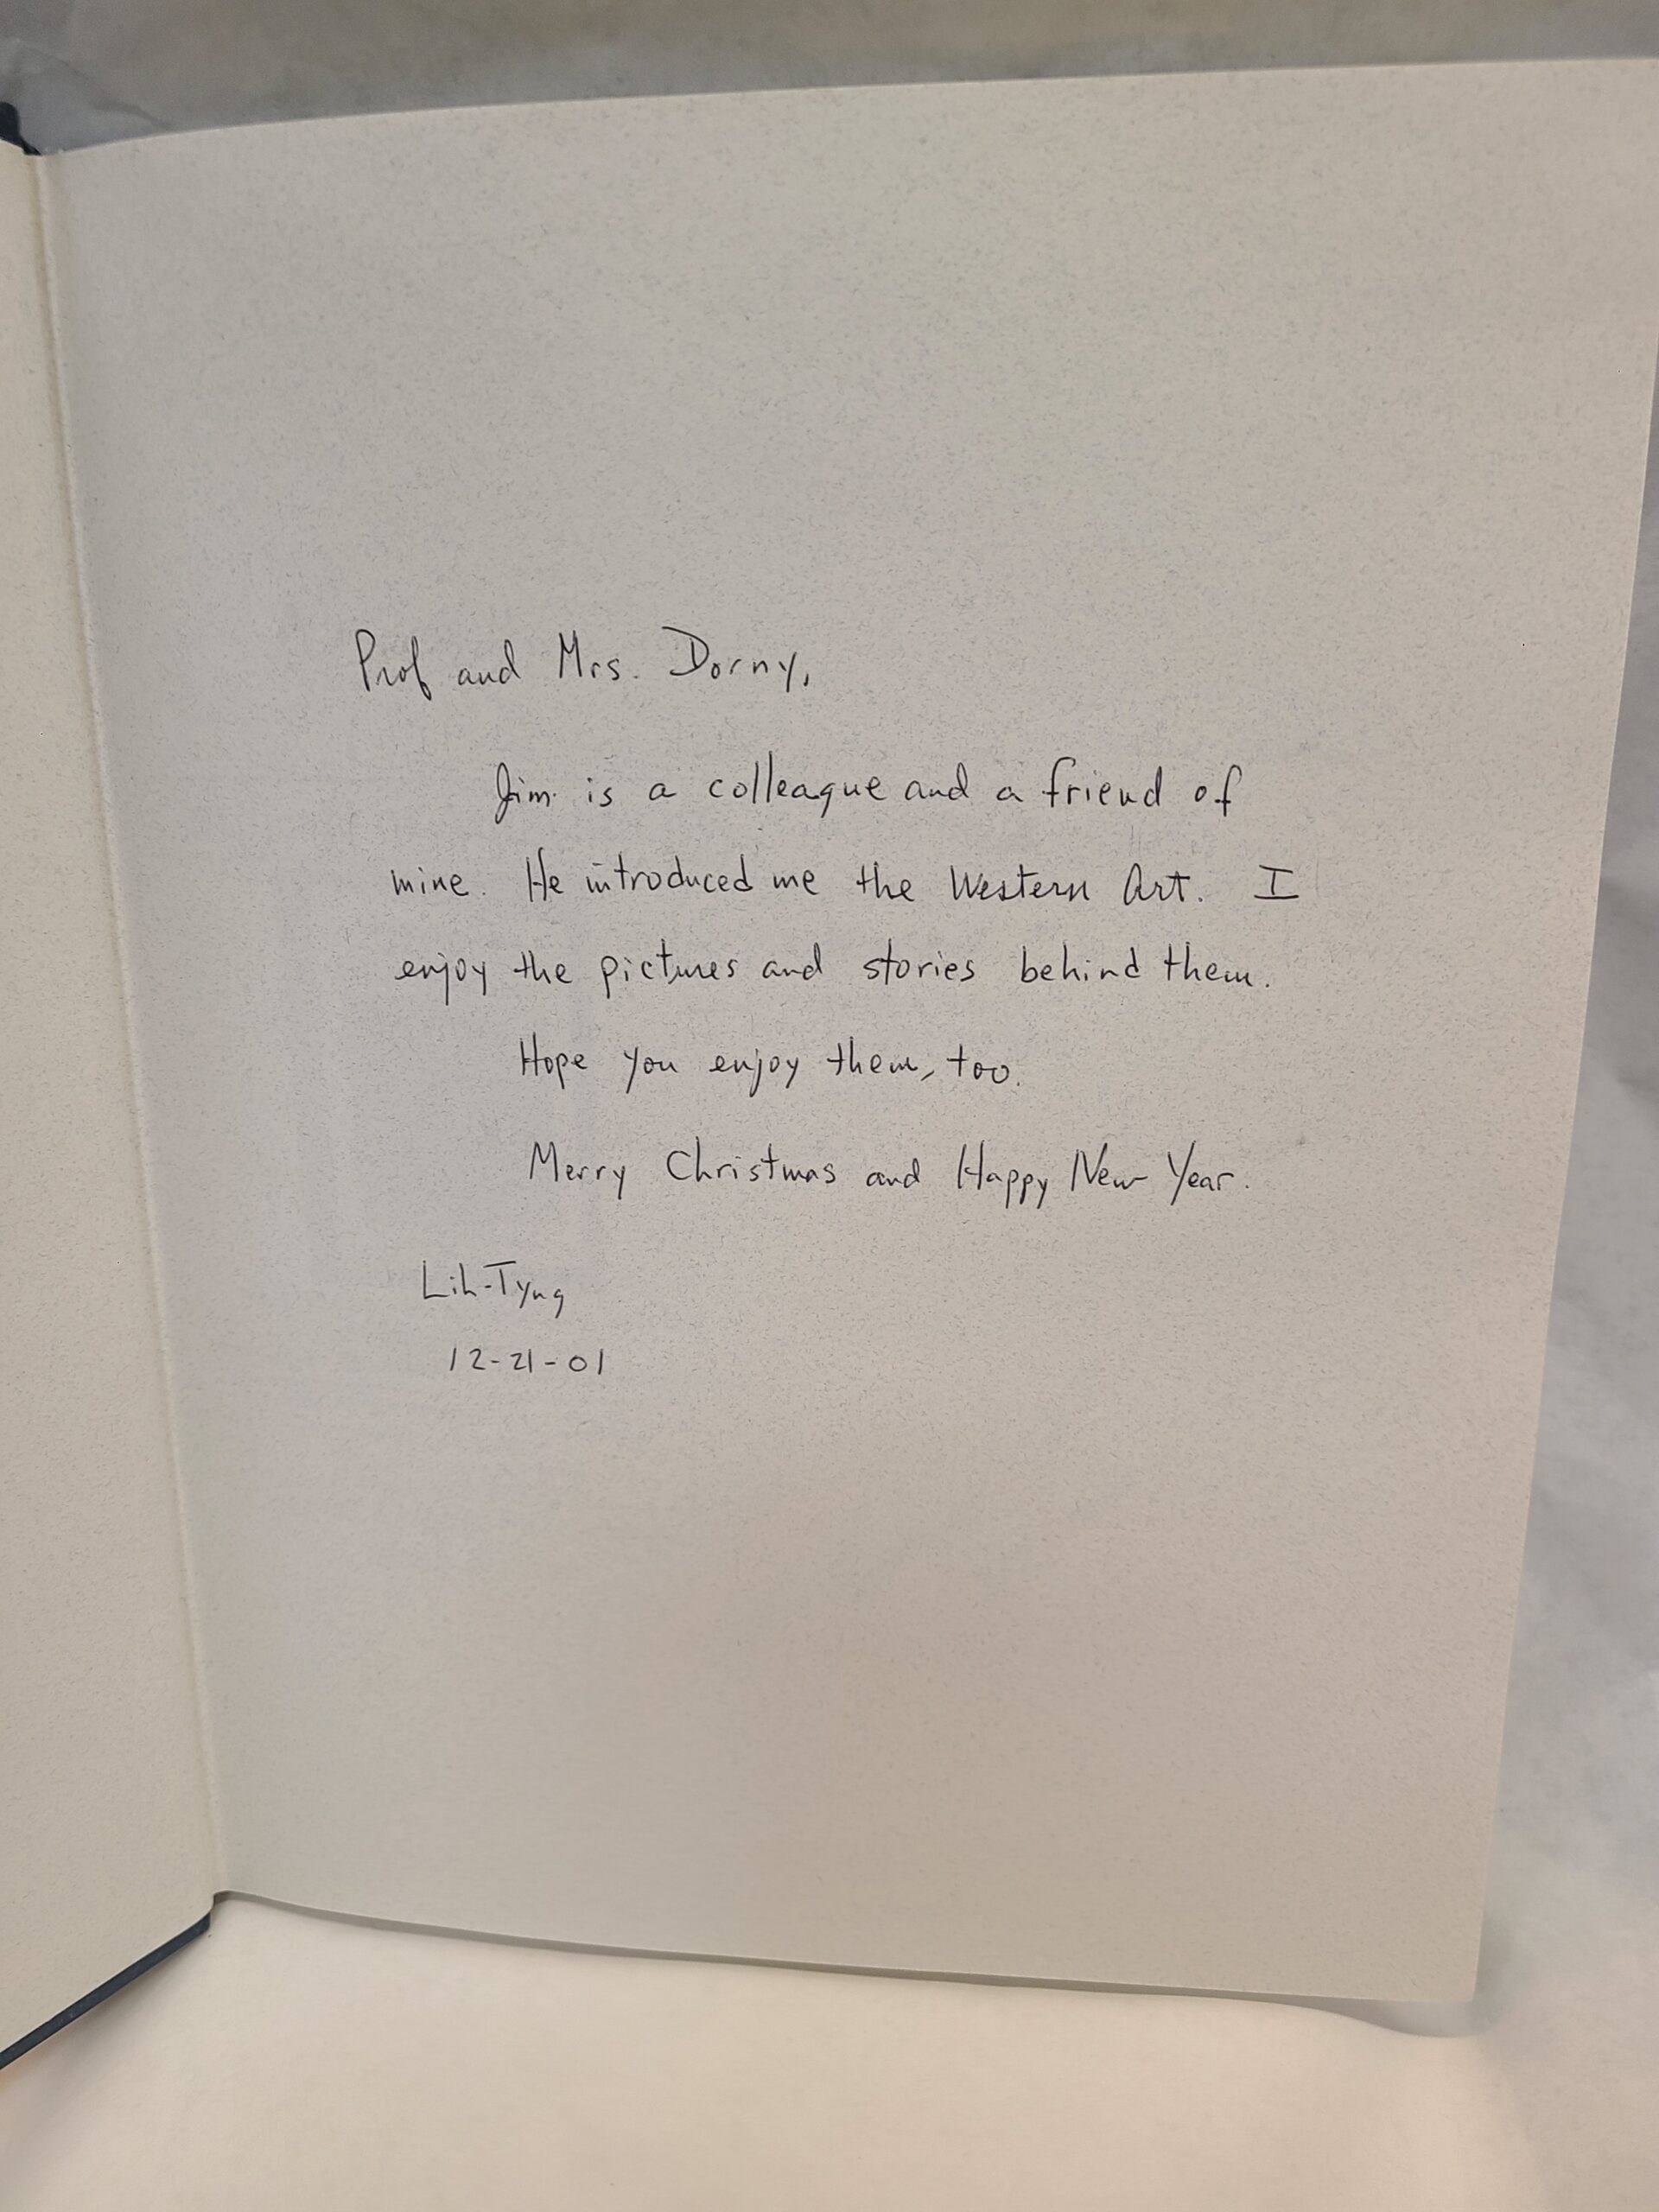 Prof and Mrs. Dorny,
Jim is a colleague and a friend of
mine. He introduced me the Western Art. I
enjoy the pictures and stories behind them.
Hope you enjoy them, too.
Merry Christmas and Happy New Year.
Lih-Tyng
12-21-01